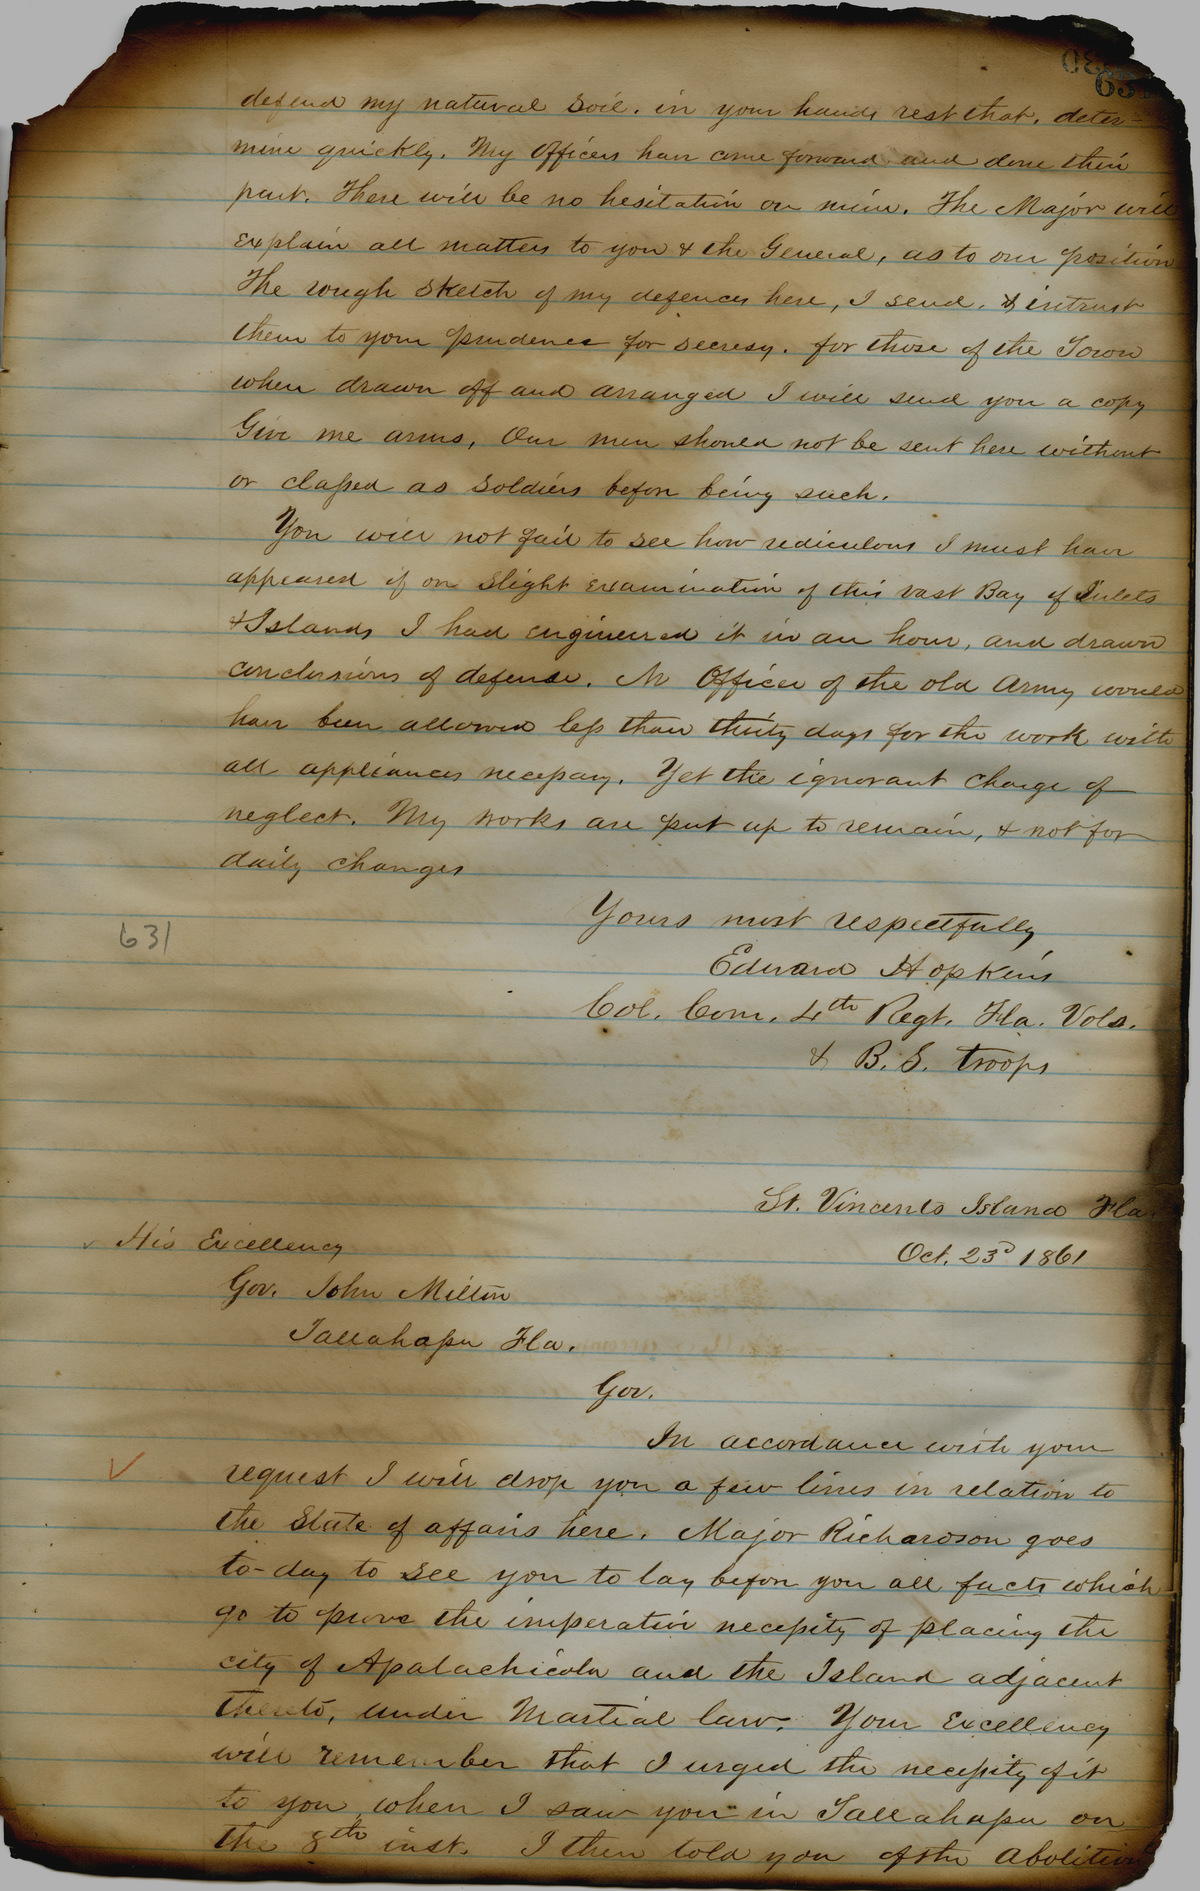 defend my natural soil. in your hands rest that. deter-
mine quickly. My Officers have come forward and done their
part. There will be no hesitation on mine. The Major will
explain all matters to you & the General, as to our position
The rough sketch of my defences here, I send. & intrust
them to your prudence for secresy. for those of the Town
when drawn off and arranged I will send you a copy
Give me arms, Our men should not be sent here without
or classed as soldiers before being such.
You will not fail to see how rediculous I must have
appeared if on slight examination of this vast Bay of Inlets
& Islands I had engineered it in an hour, and drawn
conclusions of defense. No Officer of the old Army would
have been allowed less than thirty days for the work with
all appliances necessary. Yet the ignorant charge of
neglect. My works are put up to remain, & not for
daily changes
Yours most respectfully
631
Edward Hopkins
Col. Com. 4th Regt. Fla. Vols.
& B. S. troops
St. Vincents Island Fla.
His Excellency
Oct. 23d 1861
Gov. John Milton
Tallahassee Fla.
Gov.
In accordance with your
request I will drop you a few lines in relation to
the State of affairs here. Major Richardson goes
to-day to see you to lay before you all facts which
go to prove the imperative necessity of placing the
city of Apalachicola and the Island adjacent
thereto, under Martial law. Your Excellency
will remember that I urged the necessity of it
to you, when I saw you in Tallahassee on
the 8th inst. I then told you of the Abolition